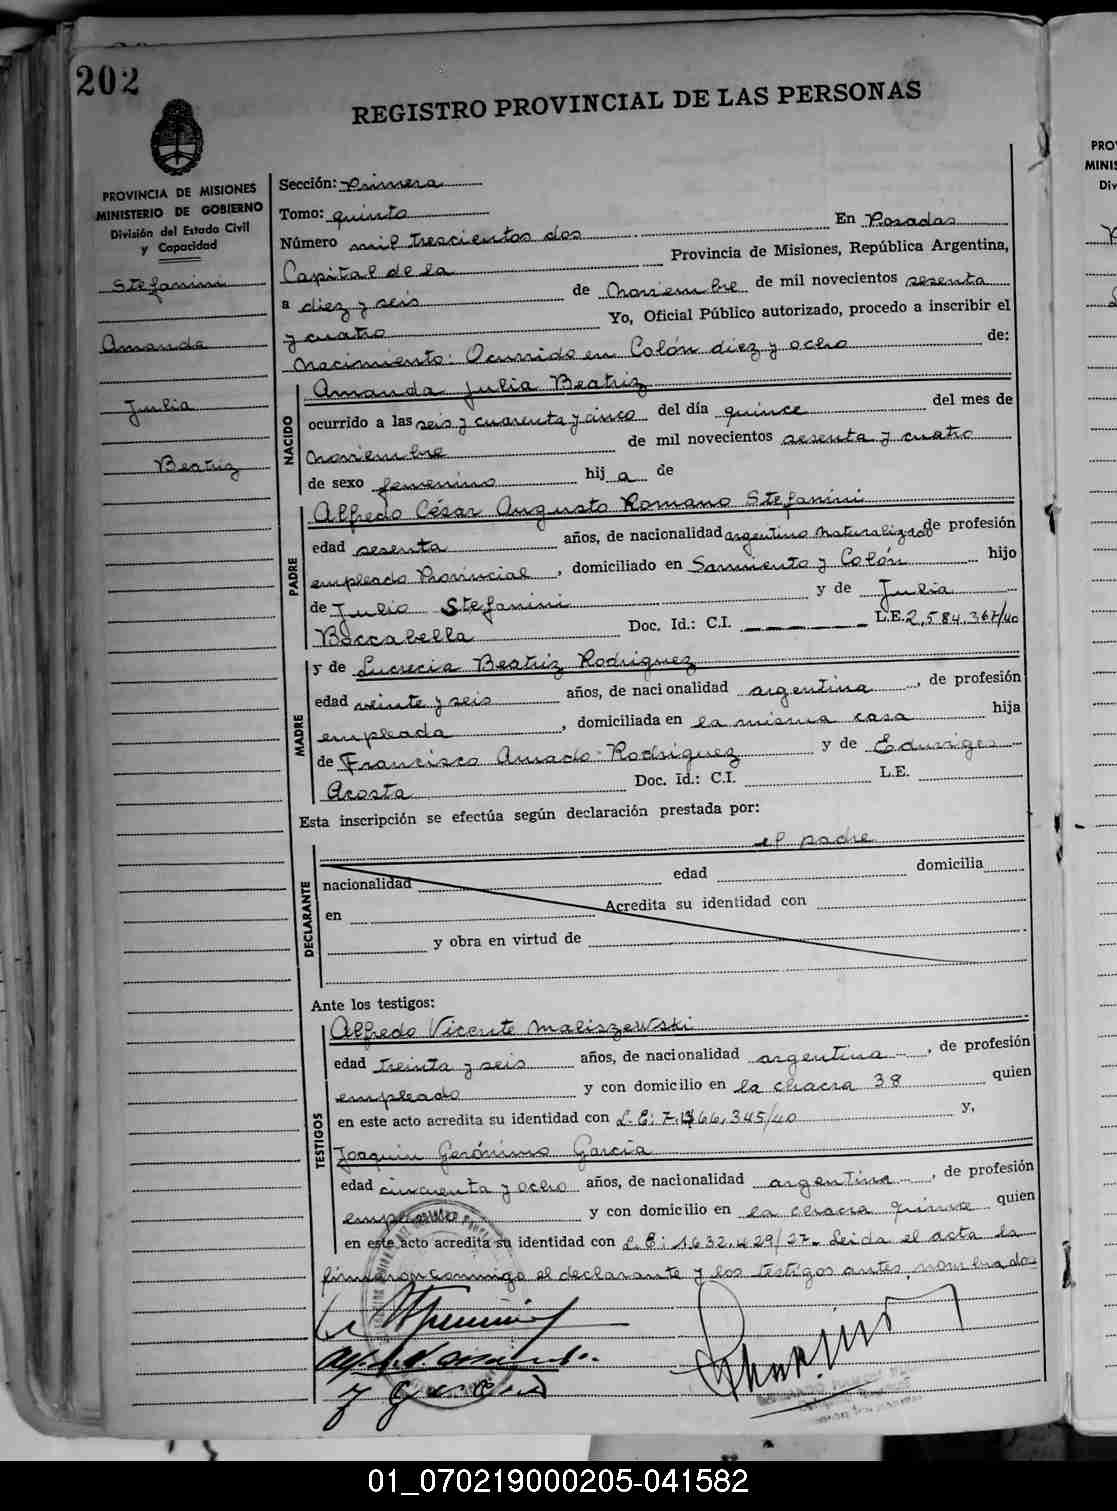 202
REGISTRO PROVINCIAL DE LAS PERSONAS
PROVINCIA DE MISIONES
MINISTERIO DE GOBIERNO
División del Estado Civil
y Capacidad
Stefanini
Amanda
Julia
Beatriz
Sección: Primera
Tomo: quinto
En Posadas
Número mil trescientos dos
Capital de la Provincia de Misiones, República Argentina,
a diez y seis de Noviembre de mil novecientos sesenta
y cuatro Yo, Oficial Público autorizado, procedo a inscribir el
Nacimiento: Ocurrido en Colón diez y ocho de:
NACIDO
Amanda Julia Beatriz
ocurrido a las seis y cuarenta y cinco del día quince del mes de
Noviembre de mil novecientos sesenta y cuatro
de sexo femenino hij a de
PADRE
Alfredo César Augusto Romano Stefanini
edad sesenta años, de nacionalidad argentino Naturalizado de profesión
empleado Provincial, domiciliado en Sarmiento y Colón hijo
de Julio Stefanini y de Julia
Boccabella Doc. Id.: C.I. L.E. 2.584.367/40
MADRE
y de Lucrecia Beatriz Rodriguez
edad veinte y seis años, de nacionalidad argentina, de profesión
empleada, domiciliada en la misma casa hija
de Francisco Amado Rodriguez y de Eduviges
Acosta Doc. Id.: C.I. L.E.
Esta inscripción se efectúa según declaración prestada por:
el padre
DECLARANTE
nacionalidad edad domicilia
en Acredita su identidad con
y obra en virtud de
Ante los testigos:
TESTIGOS
Alfredo Vicente Maliszewski
edad treinta y seis años, de nacionalidad argentina, de profesión
empleado y con domicilio en la chacra 38 quien
en este acto acredita su identidad con L.E: y,
Joaquin Gerónimo Garcia
edad cincuenta y ocho años, de nacionalidad argentina, de profesión
empleado y con domicilio en la chacra quince quien
en este acto acredita su identidad con L.E: 1.632.429/27. Leida el acta la
firmaron conmigo el declarante y los testigos antes nombrados
PRO
MINIS
Div
01_070219000205-041582